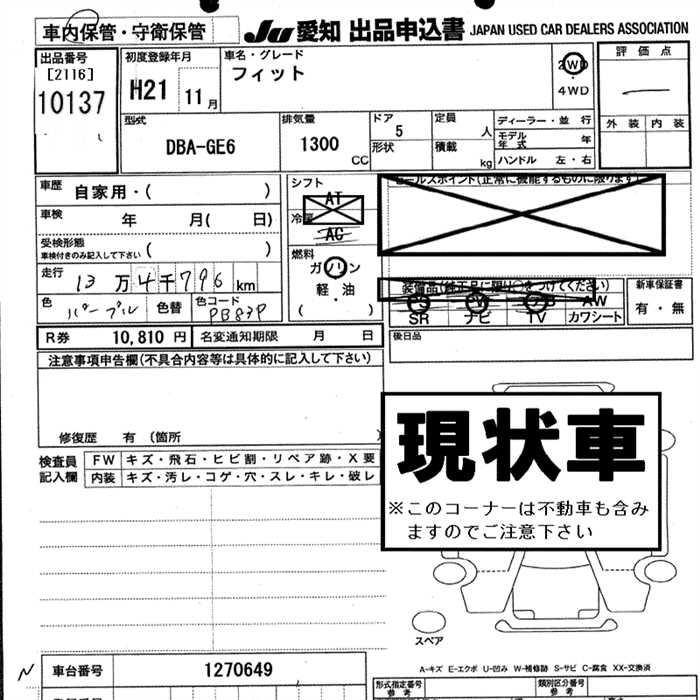 車内保管・守衛保管
JU愛知 出品申込書 JAPAN USED CAR DEALERS ASSOCIATION
出品番号
[2116]
10137
初度登録年月
H21 11月
車名・グレード
フィット
2WD
・
4WD
評価点
外装 内装
型式
DBA-GE6
排気量
1300
CC
ドア
5
形状
定員
人
積載
kg
ディーラー・並行
モデル年式 年
ハンドル 左・右
車歴 自家用・( )
車検 年 月( 日)
受検形態
車検付きのみ記入して下さい ( )
走行 13万4千796km
色 パープル 色替 色コード PB83P
シフト
AT
冷房
AC
燃料
ガソリン
軽・油
( )
セールスポイント(正常に機能するものに限ります)
装備品(純正品に限り○をつけてください)
AW
SR ナビ TV カワシート
新車保証書
有・無
後日品
R券 10,810円 名変通知期限 月 日
注意事項申告欄(不具合内容等は具体的に記入して下さい)
修復歴 有 (箇所 )
現状車
※このコーナーは不動車も含み
ますのでご注意下さい
検査員
記入欄
FW キズ・飛石・ヒビ割・リペア跡・X要
内装 キズ・汚レ・コゲ・穴・スレ・キレ・破レ
スペア
A-キズ E-エクボ U-凹み W-補修跡 S-サビ C-腐食 XX-交換済
N 車台番号 1270649
形式指定番号
参考
類別区分番号
参考